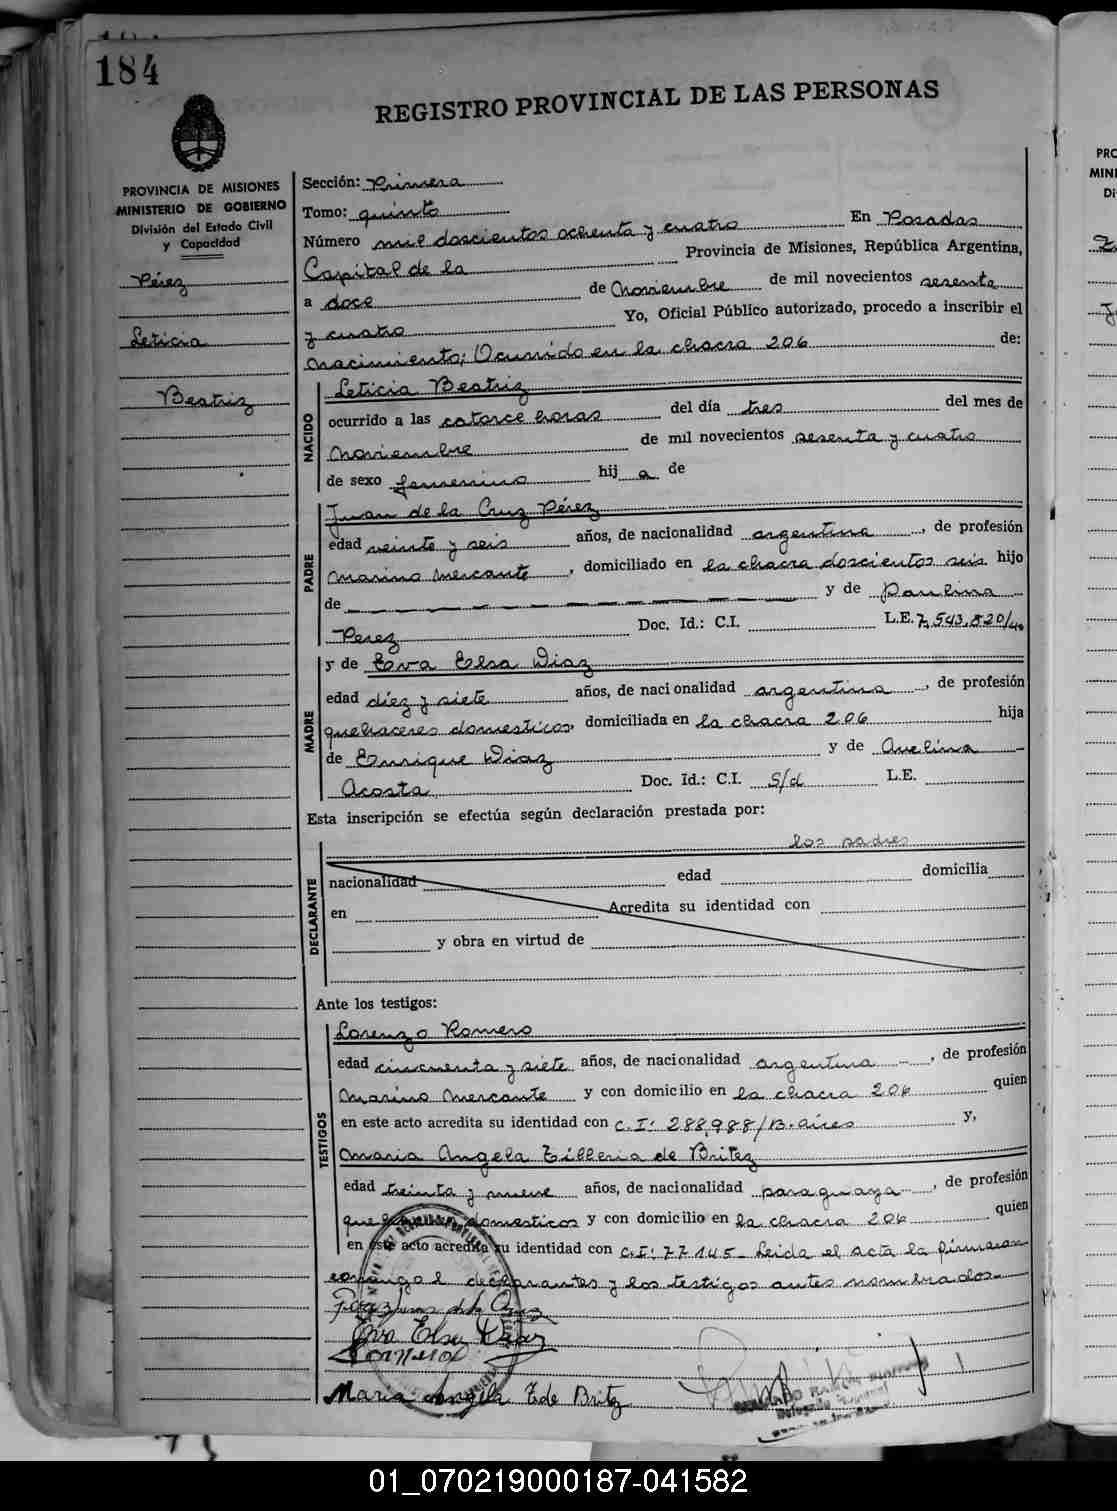 184
REGISTRO PROVINCIAL DE LAS PERSONAS
PROVINCIA DE MISIONES
MINISTERIO DE GOBIERNO
División del Estado Civil
y Capacidad
Pérez
Leticia
Beatriz
Sección: Primera
Tomo: quinto
Número mil doscientos ochenta y cuatro En Posadas
Capital de la Provincia de Misiones, República Argentina,
a doce de Noviembre de mil novecientos sesenta
y cuatro Yo, Oficial Público autorizado, procedo a inscribir el
nacimiento; Ocurrido en la chacra 206 de:
NACIDO
Leticia Beatriz
ocurrido a las catorce horas del día tres del mes de
Noviembre de mil novecientos sesenta y cuatro
de sexo femenino hij a de
PADRE
Juan de la Cruz Pérez
edad veinte y seis años, de nacionalidad argentina, de profesión
Marino Mercante, domiciliado en la chacra doscientos seis hijo
de y de Paulina
Perez Doc. Id.: C.I. L.E. 7,543,820/
MADRE
y de Eva Elsa Diaz
edad diez y siete años, de nacionalidad argentina, de profesión
quehaceres domesticos, domiciliada en la chacra 206 hija
de Enrique Diaz y de Avelina
Acosta Doc. Id.: C.I. S/d L.E.
Esta inscripción se efectúa según declaración prestada por:
los padres
DECLARANTE
nacionalidad edad domicilia
en Acredita su identidad con
y obra en virtud de
Ante los testigos:
TESTIGOS
Lorenzo Romero
edad cincuenta y siete años, de nacionalidad argentina, de profesión
Marino Mercante y con domicilio en la chacra 206 quien
en este acto acredita su identidad con C.I: 288,988/B. aires y,
Maria Angela Tilleria de Britez
edad treinta y nueve años, de nacionalidad paraguaya, de profesión
domesticos y con domicilio en la chacra 206 quien
en este acto acredita su identidad con C.I: 77145- Leida el acta la firmaron
conmigo l declarantes y los testigos antes nombrados.
Perez Juan de la Cruz
Eva Elsa Diaz
Romero
Maria Angela T de Britz
PRO
MINI
Di
01_070219000187-041582